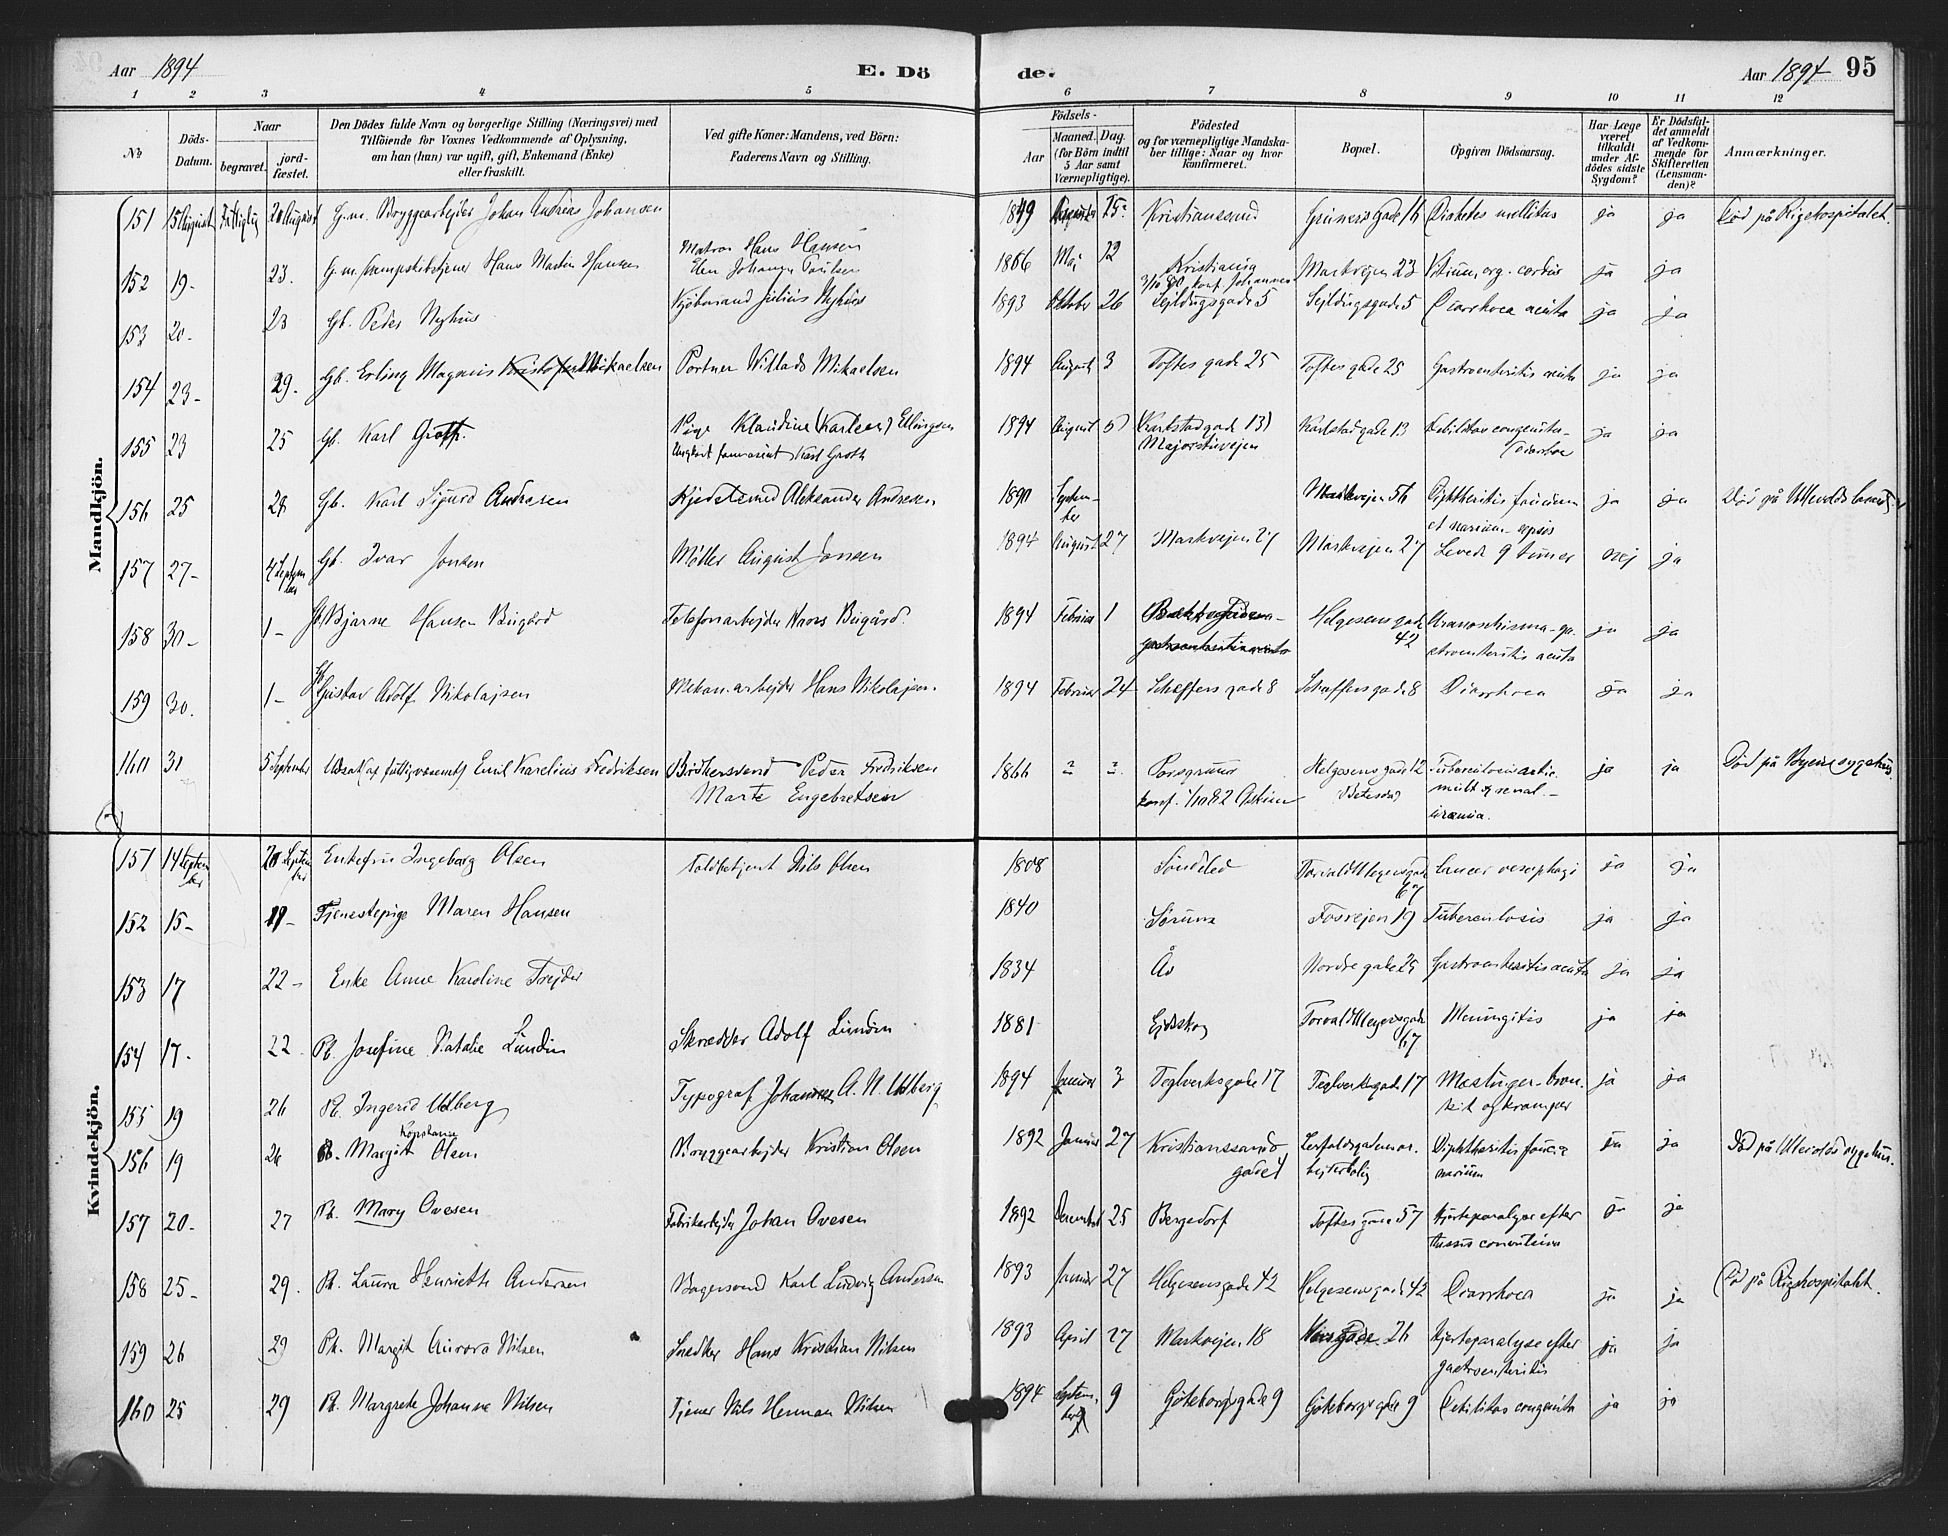 Aar 1894
E. Dö
de.
Aar 1894 95
1 2 3 4 5 6 7 8 9 10 11 12
No.
Döds-Datum.
Naar
begravet.
jord-fæstet.
Den Dödes fulde Navn og borgerlige Stilling (Næringsvei) med
Tilföiende for Voxnes Vedkommende af Oplysning,
om han (hun) var ugift, gift, Enkemand (Enke)
eller fraskilt.
Ved gifte Koner: Mandens, ved Börn:
Faderens Navn og Stilling.
Födsels-
Aar
Maaned. Dag.
(for Börn indtil
5 Aar samt
Værnepligtige).
Födested
og for værnepligtige Mandska-
ber tillige: Naar og hvor
konfirmeret.
Bopæl.
Opgiven Dödsaarsag.
Har Læge
været
tilkaldt
under Af-
dödes sidste
Sygdom?
Er Dödsfal-
det anmeldt
af Vedkom-
mende for
Skifteretten
(Lensman-
den)?
Anmærkninger.
Mandkjön.
151 15 August 20 August G.m. Bryggearbejder Johan Andreas Johansen 1849 25 Kristianssund Grüners Gade 16 Diabetes mellitus ja ja Död på Rigshospitalet.
152 19- 23. G.m. Hans Martin Hansen Matros Hans Hansen 1866 Mai 12 Kristiania Markvejen 23 Vitium org. cordis ja ja
153 20- 23 Gb. Peder Nyhus Kjöbmand Julius Nyhus 1893 Oktober 26 Sejldugsgade 5 Sejldugsgade 5 Diarrhoea acuta ja ja
154 23- 29. Gb. Erling Magnus Mikaelsen Portner Willads Mikaelsen 1894 August 3 Toftes gade 25 Toftes gade 25 Gastroenteritis acuta ja ja
155 23 25 Gb. Karl Groth. Pige Klaudine (Karlsen) Ellingsen
Karl Groth 1894 August (Karlstadgade 13)
Majorstuvejen Karlstadgade 13 Debilitas congenita- ja ja
156 25 28 Gb. Karl Sigurd Andresen Aleksander Andresen 1890 Septem-
ber Markvejen 56 Diphtheritis faucium
et narium - sepsis ja ja Död på Ullevolds
157 27- 4 September Gb. Ivar Jonsen Møller August Jonsen 1894 August 27 Markvejen 27 Markvejen 27 Levede 9 timer nej ja
158 30- 1- Gb. Bjarne Hansen Telefonarbejder Hans 1894 Februar 1 Helgesens gade
42 ja ja
159 30. 1- Gb. Gustav Adolf Nikolajsen Mekan. arbejder Hans Nikolajsen. 1894 Februar 24 Schæffers gade 8 Schæffers gade 8 Diarrhoea ja ja
160 31 5 September Emil Karelius Fredriksen Peder Fredriksen
Marte Engebretsen 1866 Porsgrund
konf. Helgesens gade 12 Tuberculosis ja ja Död på Byens sygehus
Kvindekjön.
151 14 Septem
ber 20 Septem
ber Enkefru Ingeborg Olsen Toldbetjent Nils Olsen 1808 Söndeled Torvald Meyersgade
67 Cancer oesophagi ja ja
152 15- Tjenestepige Maren Hansen 1840 Sörum Fosvejen 19 Tuberculosis ja ja
153 17 22- Enke Anne Karoline Trejder 1834 Ås Nordre gade 25 Gastroenteritis acuta ja ja
154 17- 22. Pb. Josefine Natalie Lundin Skrædder Adolf Lundin 1881 Ejdskog Torvald Meyersgade
67 Meningitis ja ja
155 19 26 Pb. Ingerid Udberg Typograf Johannes A. N. Udberg 1894 Januar 3 Teglverksgade 17 Teglverksgade 17 Mæslinger - bron-
kit og kramper ja ja
156 19 26 Pb. Margit Konstanse Olsen Bryggearbejder Kristian Olsen 1892 Januar 27 Kristianssund
gade 1 Diphtheritis faucia
narium ja ja Död på Ullevolds sygehus.
157 20- 27 Pb. Mary Ovesen Fabrikarbejder Johan Ovesen 1892 December 25 Bergedorf Toftes gade 57 Hjerteparalyse efter
tussis convulsiva ja ja
158 25- 29. Pb. Laura Henriette Andersen Bagersvend Karl Ludvig Andersen 1893 Januar 27 Helgesens gade 42 Helgesens gade 42 Diarrhoea ja ja Död på Rigshospitalet.
159 26 29 Pb. Margit Aurora Nilsen Snedker Hans Kristian Nilsen 1893 April 27 Markvejen 18 26 Hjerteparalyse efter
gastroenteritis ja ja
160 25 29 Pb. Margrete Johanne Nilsen Tjener Nils Herman Nilsen 1894 Septem-
ber 9 Göteborgsgade 9 Göteborgsgade 9 Debilitas congenita ja ja